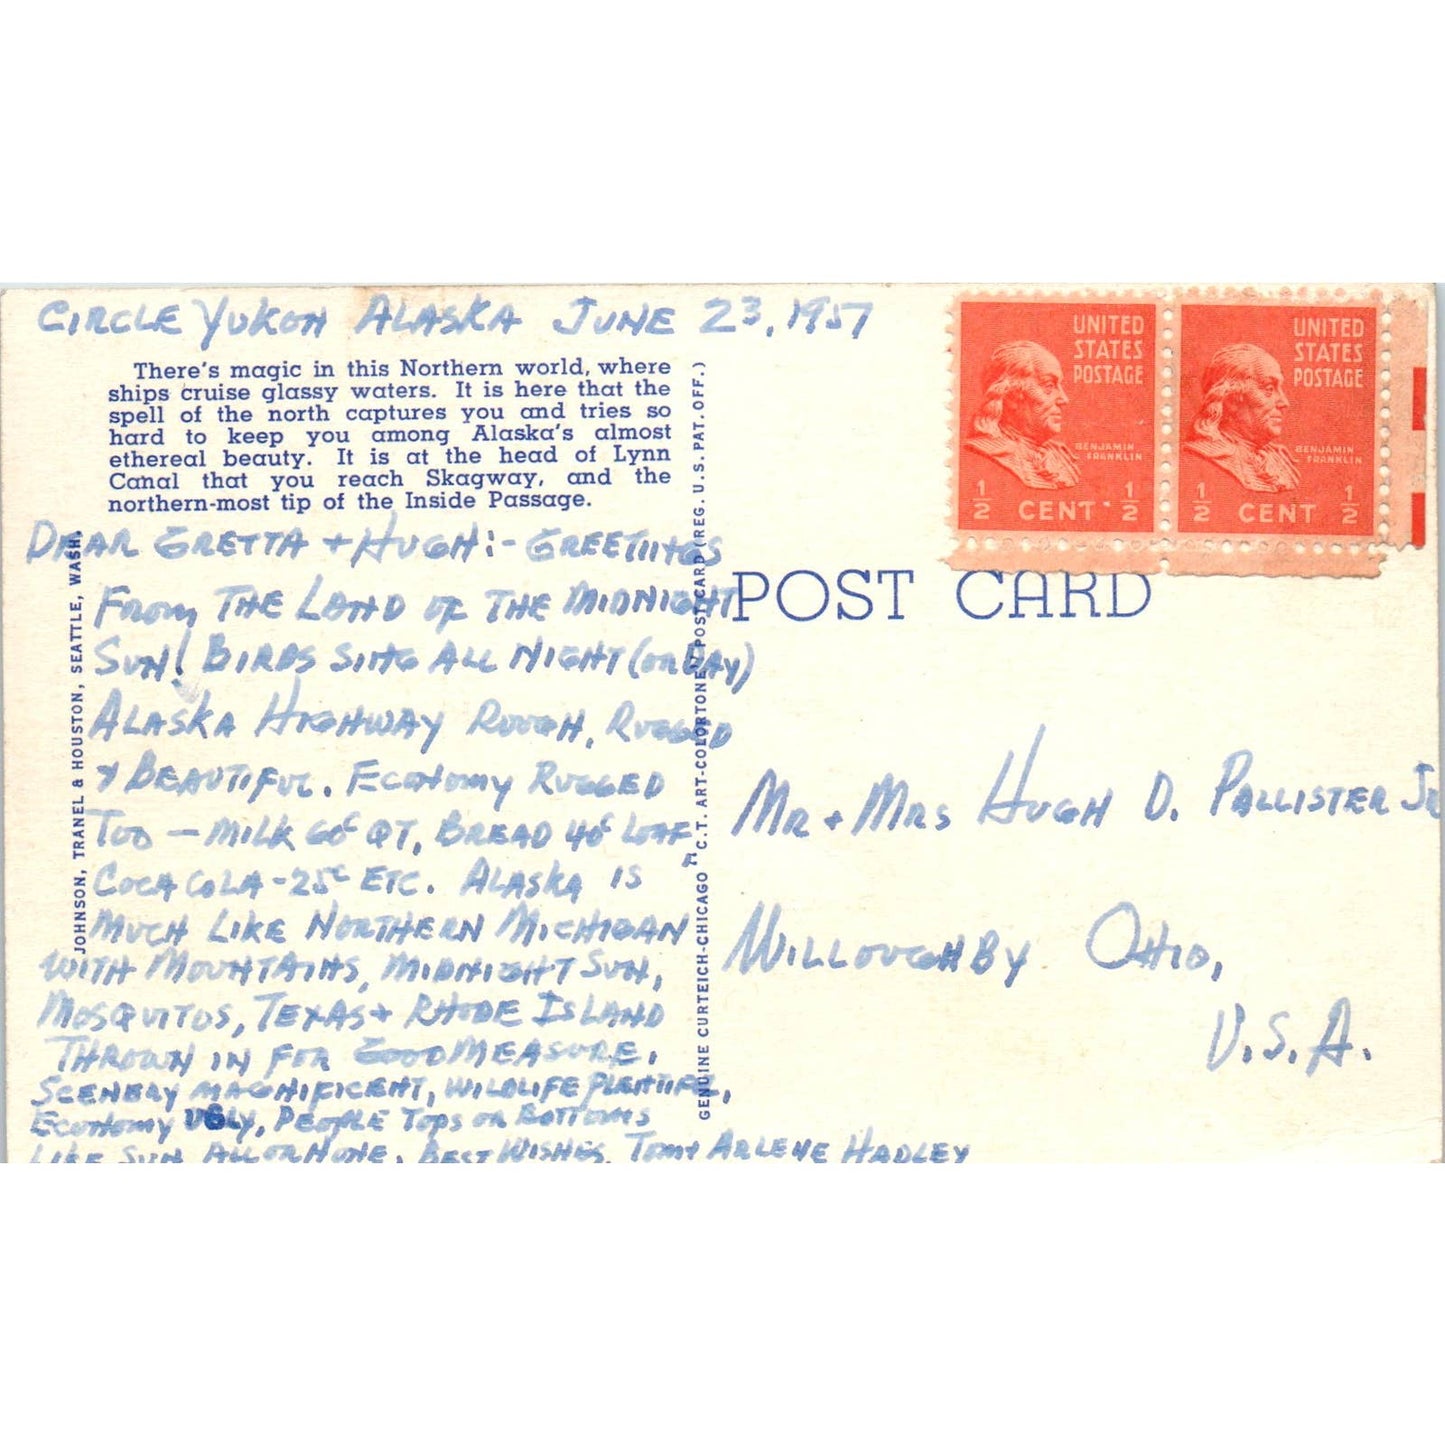 CIRCLE YUKON ALASKA JUNE 23, 1957
There's magic in this Northern world, where
ships cruise glassy waters. It is here that the
spell of the north captures you and tries so
hard to keep you among Alaska's almost
ethereal beauty. It is at the head of Lynn
Canal that you reach Skagway, and the
northern-most tip of the Inside Passage.
DEAR GRETTA + HUGH:- GREETINGS
FROM THE LAND OF THE MIDNIGHT
SUN! BIRDS SING ALL NIGHT (OR DAY)
ALASKA HIGHWAY ROUGH, RUGGED
+ BEAUTIFUL. ECONOMY RUGGED
TOO — MILK 60¢ QT, BREAD 40¢ LOAF
COCA COLA - 25¢ ETC. ALASKA IS
MUCH LIKE NORTHERN MICHIGAN
WITH MOUNTAINS, MIDNIGHT SUN,
MOSQUITOS, TEXAS + RHODE ISLAND
THROWN IN FOR GOOD MEASURE.
SCENERY MAGNIFICENT, WILDLIFE PLENTIFUL,
ECONOMY UGLY, PEOPLE TOPS OR BOTTOMS
LIKE SUN ALL OR NONE. BEST WISHES, TOM + ARLENE HADLEY
JOHNSON, TRANEL & HOUSTON, SEATTLE, WASH.
GENUINE CURTEICH-CHICAGO "C.T. ART-COLORTONE" POST CARD (REG. U.S. PAT. OFF.)
UNITED
STATES
POSTAGE
BENJAMIN
FRANKLIN
1/2 CENT 1/2
UNITED
STATES
POSTAGE
BENJAMIN
FRANKLIN
1/2 CENT 1/2
POST CARD
MR + MRS HUGH D. PALLISTER JR
WILLOUGHBY OHIO,
U.S.A.